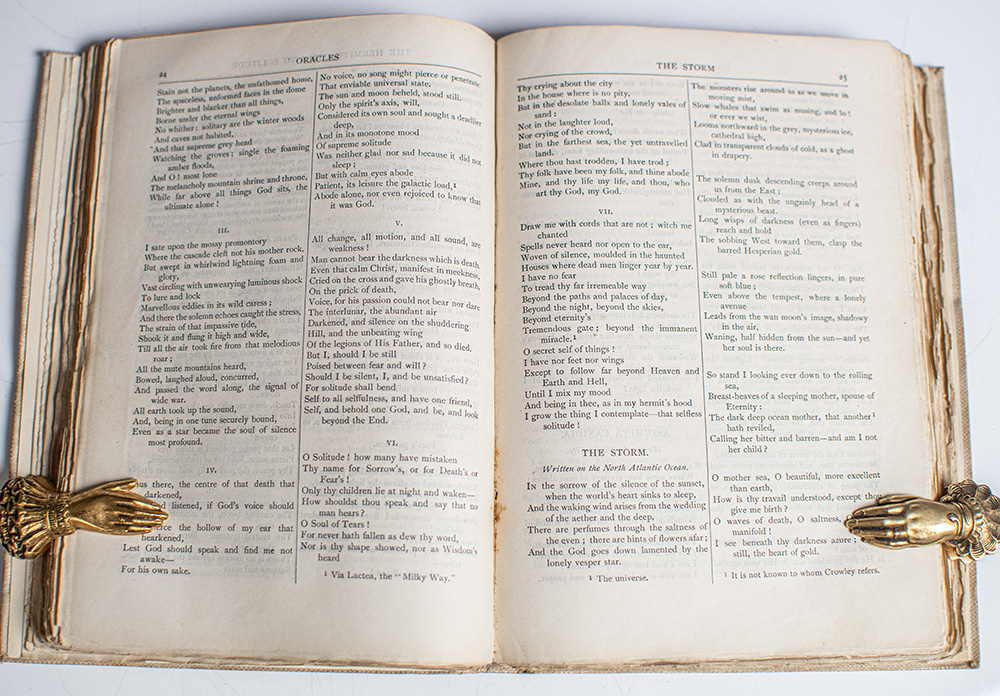 84
ORACLES
Stain not the planets, the unfathomed home,
The spaceless, unformed faces in the dome
Brighter and blacker than all things,
Borne under the eternal wings
No whither: solitary are the winter woods
And caves not habited,
And that supreme grey head
Watching the groves: single the foaming
amber floods,
And O! most lone
The melancholy mountain shrine and throne,
While far above all things God sits, the
ultimate alone!
III.
I sate upon the mossy promontory
Where the cascade cleft not his mother rock,
But swept in whirlwind lightning foam and
glory,
Vast circling with unwearying luminous shock
To lure and lock
Marvellous eddies in its wild caress;
And there the solemn echoes caught the stress,
The strain of that impassive tide,
Shook it and flung it high and wide,
Till all the air took fire from that melodious
roar;
All the mute mountains heard,
Bowed, laughed aloud, concurred,
And passed the word along, the signal of
wide war.
All earth took up the sound,
And, being in one tune securely bound,
Even as a star became the soul of silence
most profound.
IV.
us there, the centre of that death that
darkened,
listened, if God's voice should
the hollow of my ear that
hearkened,
Lest God should speak and find me not
awake—
For his own sake.
No voice, no song might pierce or penetrate
That enviable universal state.
The sun and moon beheld, stood still.
Only the spirit's axis, will,
Considered its own soul and sought a deadlier
deep,
And in its monotone mood
Of supreme solitude
Was neither glad nor sad because it did not
sleep;
But with calm eyes abode
Patient, its leisure the galactic load,¹
Abode alone, nor even rejoiced to know that
it was God.
V.
All change, all motion, and all sound, are
weakness!
Man cannot bear the darkness which is death.
Even that calm Christ, manifest in meekness,
Cried on the cross and gave his ghostly breath,
On the prick of death,
Voice, for his passion could not bear nor dare
The interlunar, the abundant air
Darkened, and silence on the shuddering
Hill, and the unbeating wing
Of the legions of His Father, and so died.
But I, should I be still
Poised between fear and will?
Should I be silent, I, and be unsatisfied?
For solitude shall bend
Self to all selffulness, and have one friend,
Self, and behold one God, and be, and look
beyond the End.
VI.
O Solitude! how many have mistaken
Thy name for Sorrow's, or for Death's or
Fear's!
Only thy children lie at night and waken—
How shouldst thou speak and say that no
man hears?
O Soul of Tears!
For never hath fallen as dew thy word,
Nor is thy shape showed, nor as Wisdom's
heard
¹ Via Lactea, the "Milky Way."
THE STORM
85
Thy crying about the city
In the house where is no pity,
But in the desolate halls and lonely vales of
sand:
Not in the laughter loud,
Nor crying of the crowd,
But in the farthest sea, the yet untravelled
land.
Where thou hast trodden, I have trod;
Thy folk have been my folk, and thine abode
Mine, and thy life my life, and thou, who
art thy God, my God.
VII.
Draw me with cords that are not; witch me
chanted
Spells never heard nor open to the ear,
Woven of silence, moulded in the haunted
Houses where dead men linger year by year.
I have no fear
To tread thy far irremeable way
Beyond the paths and palaces of day,
Beyond the night, beyond the skies,
Beyond eternity's
Tremendous gate; beyond the immanent
miracle.¹
O secret self of things!
I have nor feet nor wings
Except to follow far beyond Heaven and
Earth and Hell,
Until I mix my mood
And being in thee, as in my hermit's hood
I grow the thing I contemplate—that selfless
solitude!
THE STORM.
Written on the North Atlantic Ocean.
IN the sorrow of the silence of the sunset,
when the world's heart sinks to sleep,
And the waking wind arises from the wedding
of the aether and the deep,
There are perfumes through the saltness of
the even; there are hints of flowers afar;
And the God goes down lamented by the
lonely vesper star.
¹ The universe.
The monsters rise around us as we move in
moving mist,
Slow whales that swim as musing, and lo!
or ever we wist,
Looms northward in the grey, mysterious ice,
cathedral high,
Clad in transparent clouds of cold, as a ghost
in drapery.
The solemn dusk descending creeps around
us from the East;
Clouded as with the ungainly head of a
mysterious beast.
Long wisps of darkness (even as fingers)
reach and hold
The sobbing West toward them, clasp the
barred Hesperian gold.
Still pale a rose reflection lingers, in pure
soft blue;
Even above the tempest, where a lonely
avenue
Leads from the wan moon's image, shadowy
in the air,
Waning, half hidden from the sun—and yet
her soul is there.
So stand I looking ever down to the rolling
sea,
Breast-heaves of a sleeping mother, spouse of
Eternity:
The dark deep ocean mother, that another¹
hath reviled,
Calling her bitter and barren—and am I not
her child?
O mother sea, O beauty, more excellent
than earth,
How is thy travail understood, except thou
give me birth?
O waves of death, O saltness,
manifold!
I see beneath thy darkness azure;
still, the heart of gold.
¹ It is not known to whom Crowley refers.